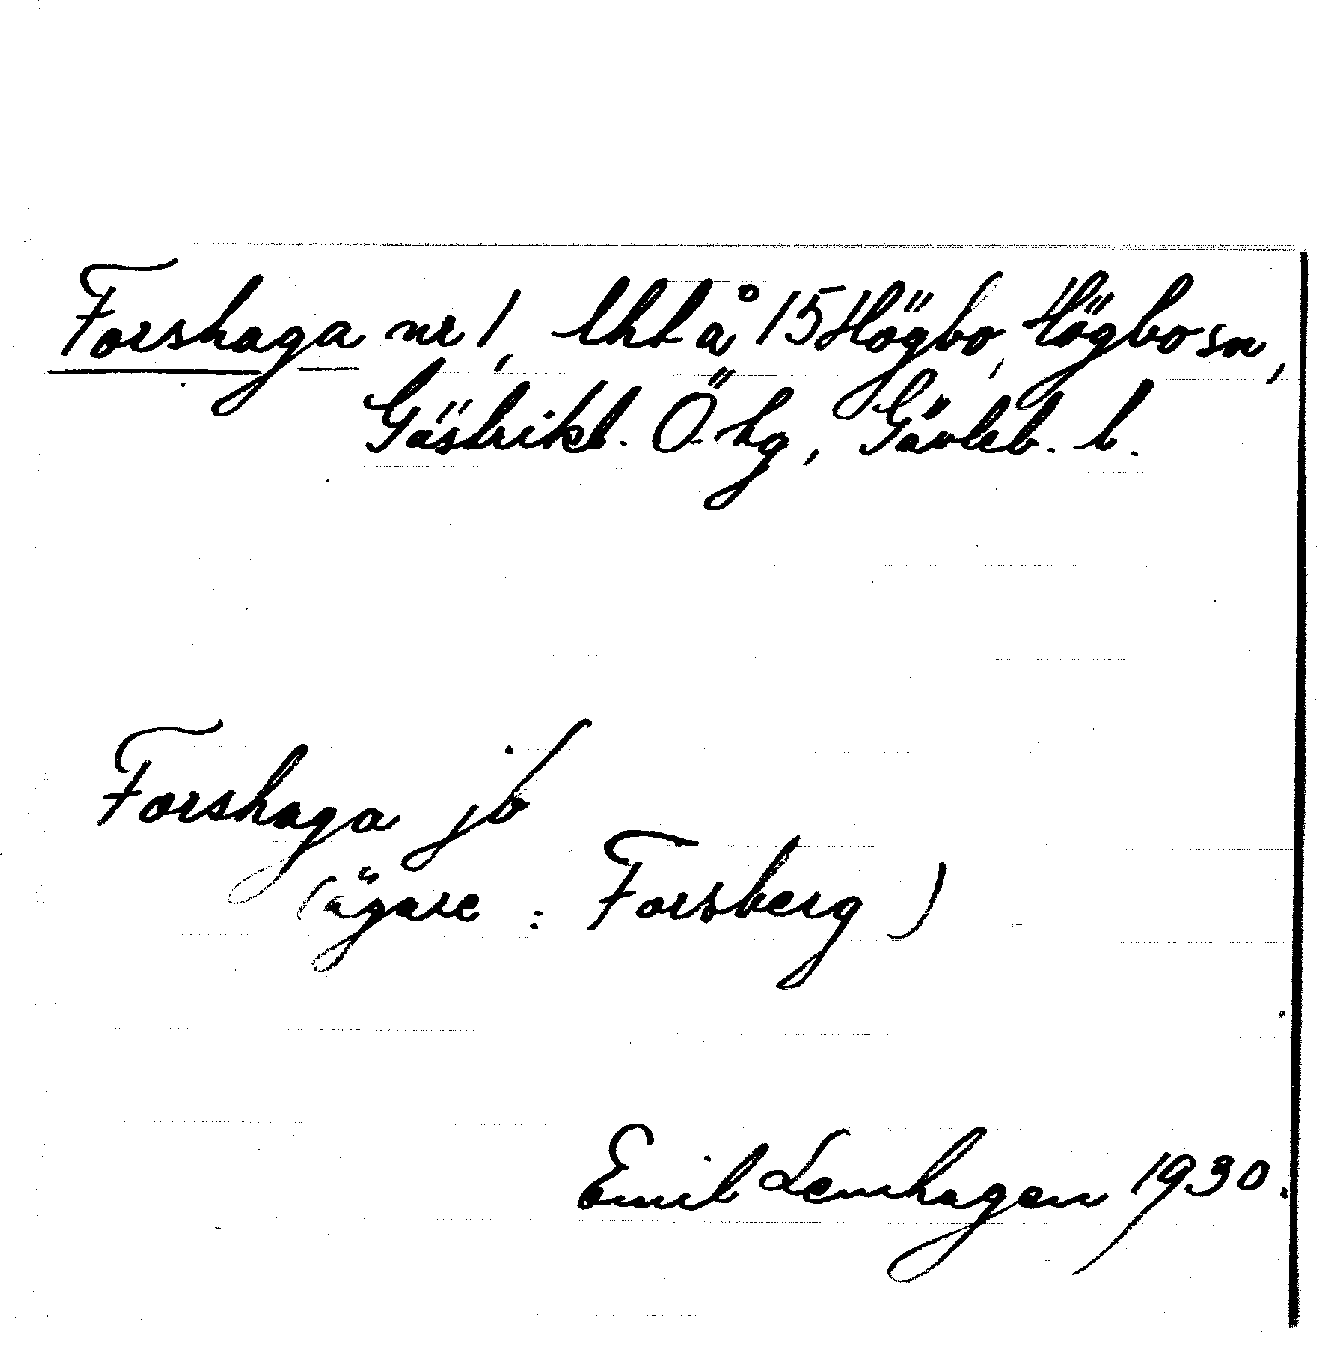 Forshaga nr 1, lht å 15 Högbo, Högbo sn,
Gästrikl. Ö. hg, Gävleb. l.
Forshaga jb
(ägare : Forsberg)
Emil Lemhagen 1930.